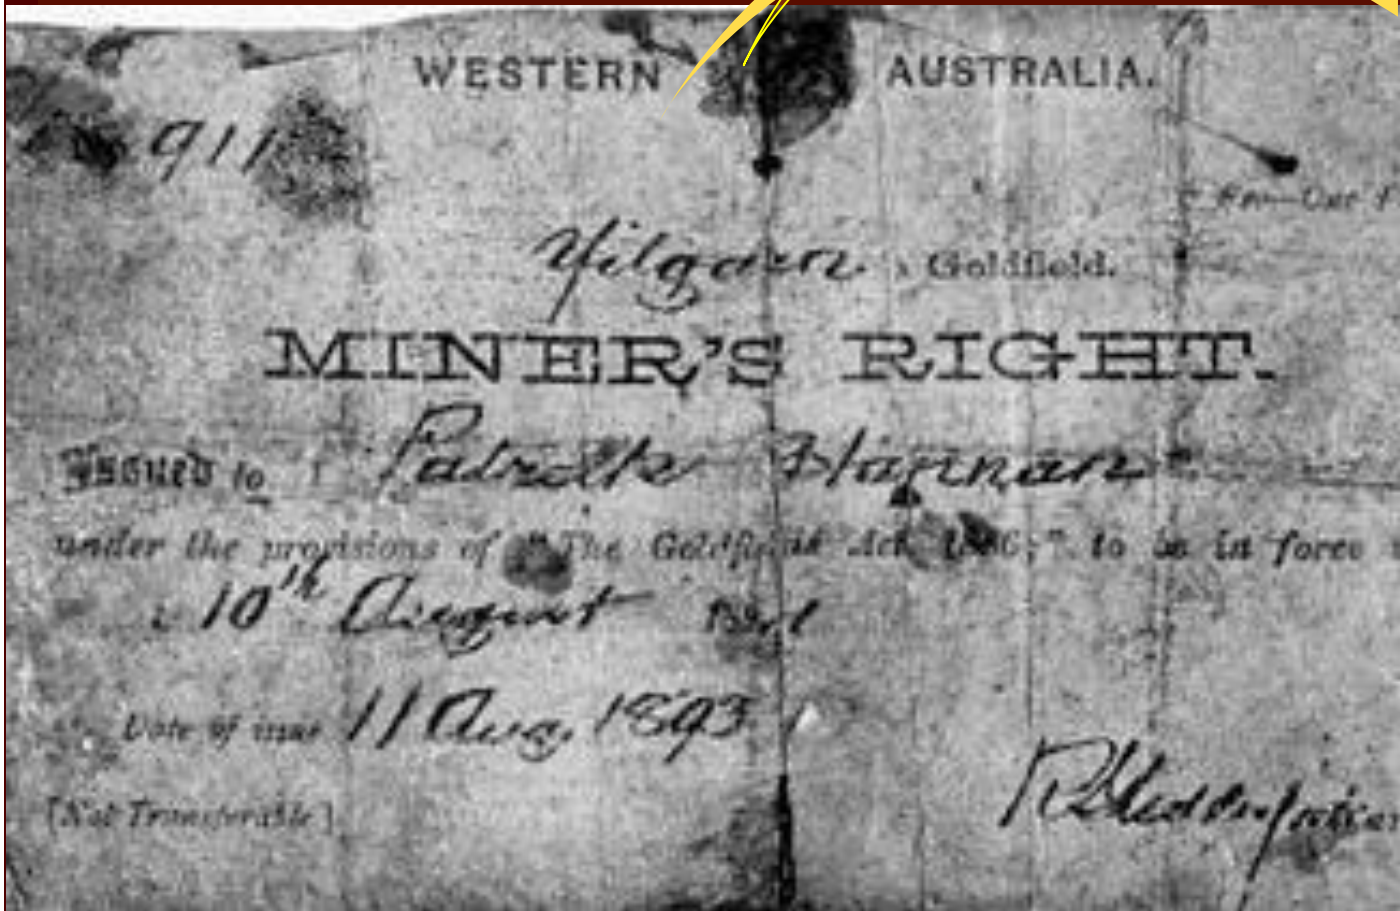 WESTERN AUSTRALIA.
911
Yilgarn Goldfield.
MINER'S RIGHT.
Issued to Patrick Hannan
under the provisions of "The Goldfields Act, 1886;" to be in force
10th August
Date of issue 11 Aug. 1893
[Not Transferable]